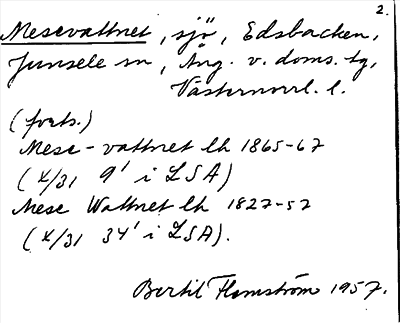 2.
Mesevattnet, sjö, Edsbacken,
Junsele sn, Ång. v. doms. tg,
Västernorrl. l.
(forts.)
Mese-vattnet lh 1865-67
(X/31 9' i LSA)
Mese Wattnet lh 1827-57
(X/31 34' i LSA).
Bertil Flemström 1957.